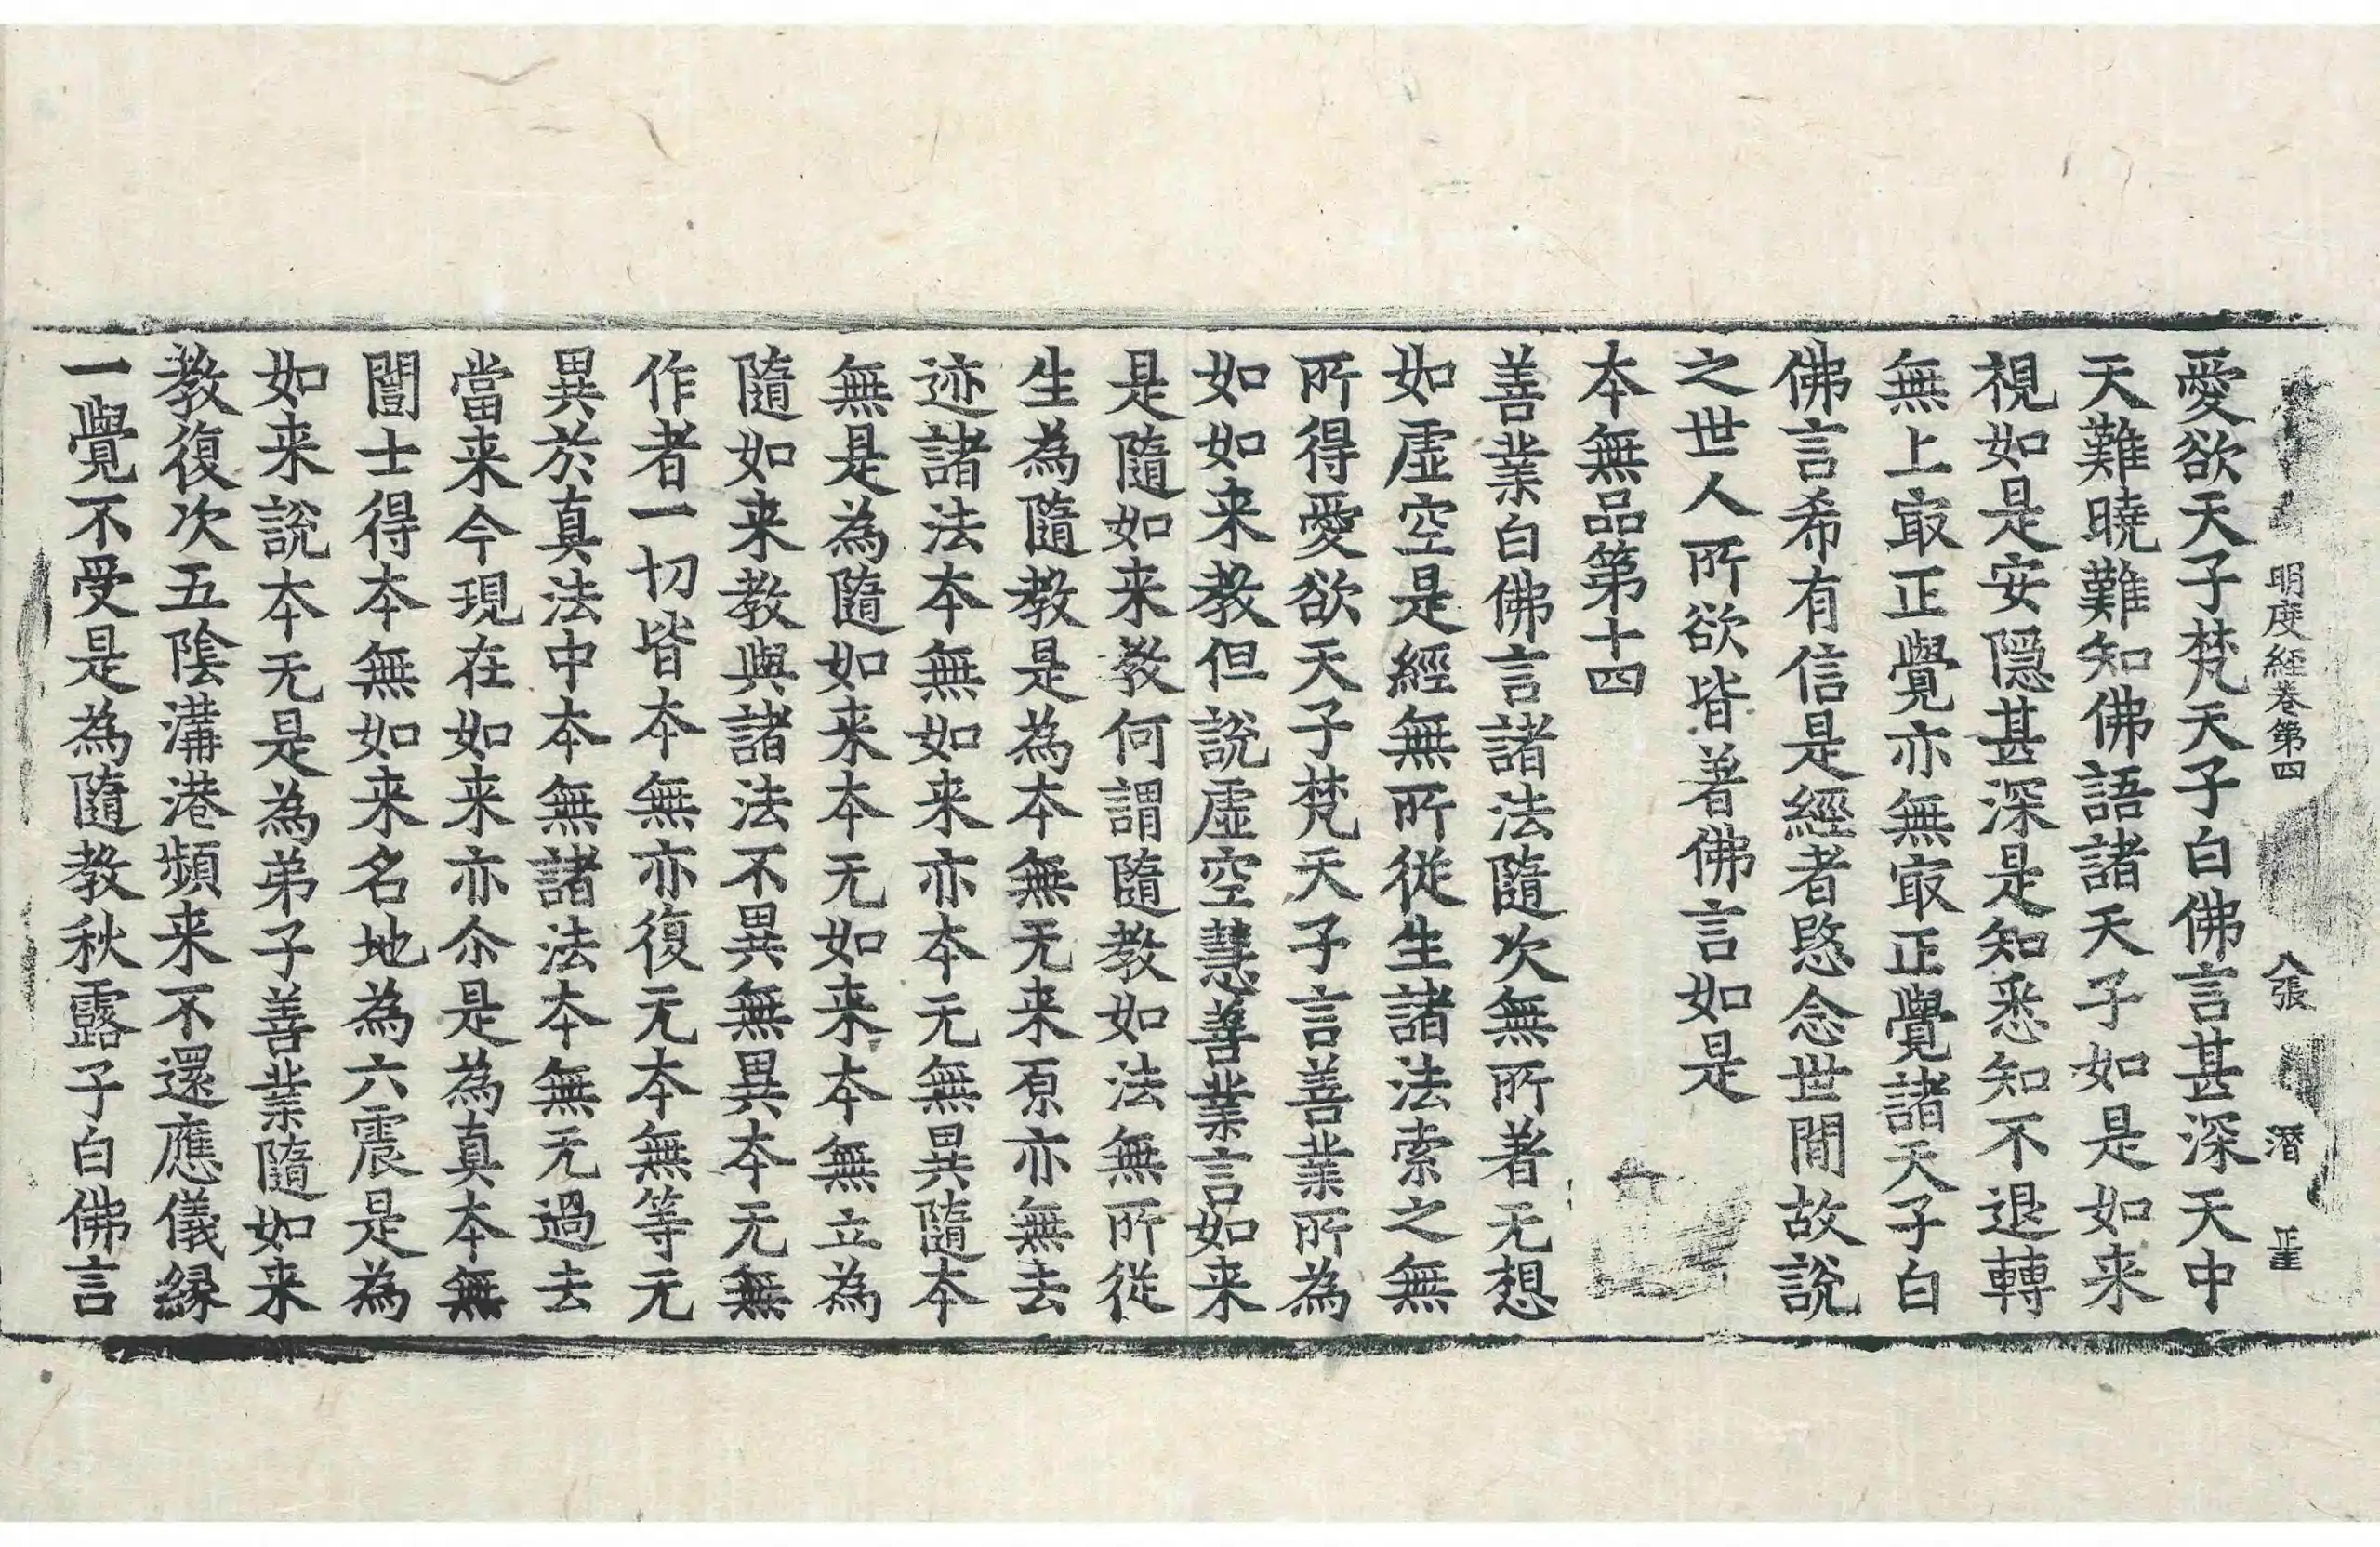 明度經卷第四　八張　潛　㘴
愛欲天子梵天子白佛言甚深天中
天難曉難知佛語諸天子如是如来
視如是安隱甚深是知悉知不退轉
無上㝡正覺亦無㝡正覺諸天子白
佛言希有信是經者愍念世間故說
之世人所欲皆著佛言如是
本無品第十四
善業白佛言諸法隨次無所著无想
如虛空是經無所從生諸法索之無
所得愛欲天子梵天子言善業所為
如如来教但說虛空慧善業言如来
是隨如来教何謂隨教如法無所從
生為隨教是為本無无来原亦無去
迹諸法本無如来亦本无無異隨本
無是為隨如来本无如来本無立為
隨如来教與諸法不異無異本无無
作者一切皆本無亦復无本無等无
異於真法中本無諸法本無无過去
當来今現在如来亦尒是為真本無
闓士得本無如来名地為六震是為
如来說本无是為弟子善業隨如来
教復次五陰溝港頻来不還應儀緣
一覺不受是為隨教秋露子白佛言